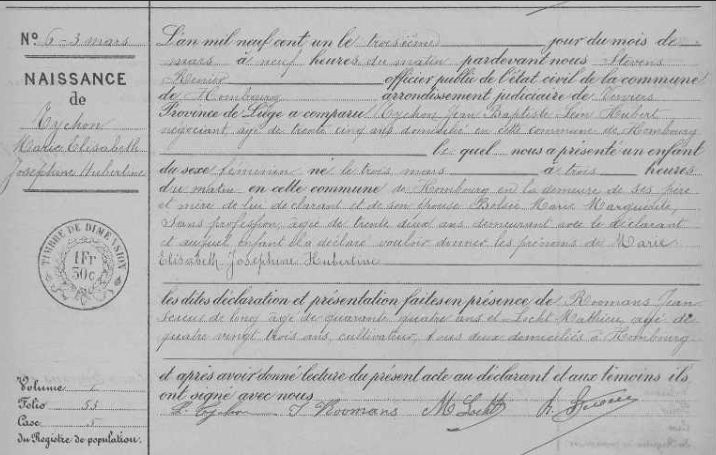 No. 6 - 3 mars
NAISSANCE
de
Tychon
Marie Elisabeth
Joséphine Hubertine
TIMBRE DE DIMENSION
1 Fr
30 c.
Volume 1
Folio 55
Case 5
du Registre de population.
L'an mil neuf cent un le troisième jour du mois de
mars à neuf heures du matin pardevant nous Stevens
Renier officier public de l'état civil de la commune
de Hombourg arrondissement judiciaire de Verviers
Province de Liège a comparu Tychon Jean Baptiste Léon Hubert
négociant, agé de trente cinq ans domicilié en cette commune de Hombourg
le quel nous a présenté un enfant
du sexe féminin né le trois mars à trois heures
du matin en cette commune de Hombourg en la demeure de ses père
et mère de lui déclarant et de son épouse Marie Marguerite,
sans profession, agée de trente deux ans demeurant avec le déclarant
et auquel enfant il a déclaré vouloir donner les prénoms de Marie
Elisabeth Joséphine Hubertine
les dites déclaration et présentation faites en présence de Roomans Jean
scieur de long agé de quarante quatre ans et Locht Mathieu, agé de
quatre vingt trois ans, cultivateur, tous deux domiciliés à Hombourg
et après avoir donné lecture du présent acte au déclarant et aux témoins ils
ont signé avec nous
L. Tychon J Roomans M Locht R. Stevens